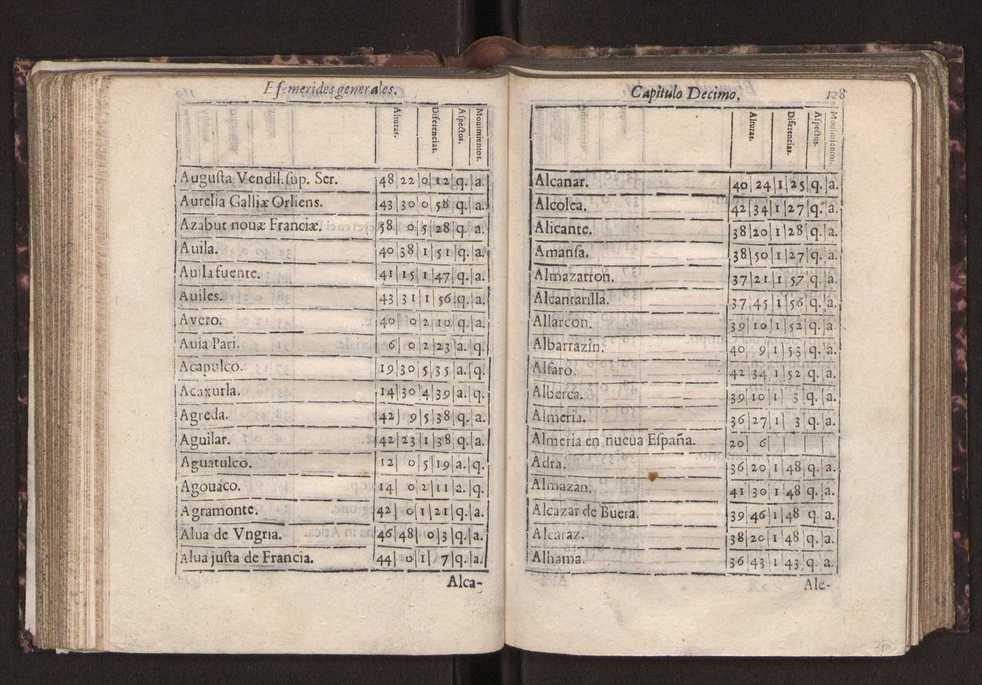 Efemerides generales.
Alturas. Diferencias. Aspectos. Mouimientos.
Augusta Vendil. sup. Ser. 48 22 0 12 q. a.
Aurelia Galliæ Orliens. 43 30 0 58 q. a.
Azabut nouæ Franciæ. 58 0 5 28 q. a.
Auila. 40 38 1 51 q. a.
Auila fuente. 41 15 1 47 q. a.
Auiles. 43 31 1 56 q. a.
Avero. 40 0 2 10 q. a.
Auia Pari. 6 0 2 23 a. q.
Acapulco. 19 30 5 35 a. q.
Acaxutla. 14 30 4 39 a. q.
Agreda. 42 9 5 38 q. a.
Aguilar. 42 23 1 38 q. a.
Aguatulco. 12 0 5 19 a. q.
Agouaco. 14 0 2 11 a. q.
Agramonte. 42 0 1 21 q. a.
Alua de Vngria. 46 48 0 3 q. a.
Alua justa de Francia. 44 0 1 7 q. a.
Alca-
Capitulo Decimo. 128
Alturas. Diferencias. Aspectos. Mouimientos.
Alcanar. 40 24 1 25 q. a.
Alcolea. 42 34 1 27 q. a.
Alicante. 38 20 1 28 q. a.
Amansa. 38 50 1 27 q. a.
Almazarron. 37 21 1 57 q. a.
Alcantarilla. 37 45 1 56 q. a.
Allarcon. 39 10 1 52 q. a.
Albarrazin. 40 9 1 53 q. a.
Alfaro. 42 34 1 52 q. a.
Alberca. 39 10 1 3 q. a.
Almeria. 36 27 1 3 q. a.
Almeria en nueua España. 20 6
Adra. 36 20 1 48 q. a.
Almazan. 41 30 1 48 q. a.
Alcazar de Buera. 39 46 1 48 q. a.
Alcaraz. 38 20 1 48 q. a.
Alhama. 36 43 1 43 q. a.
Ale-